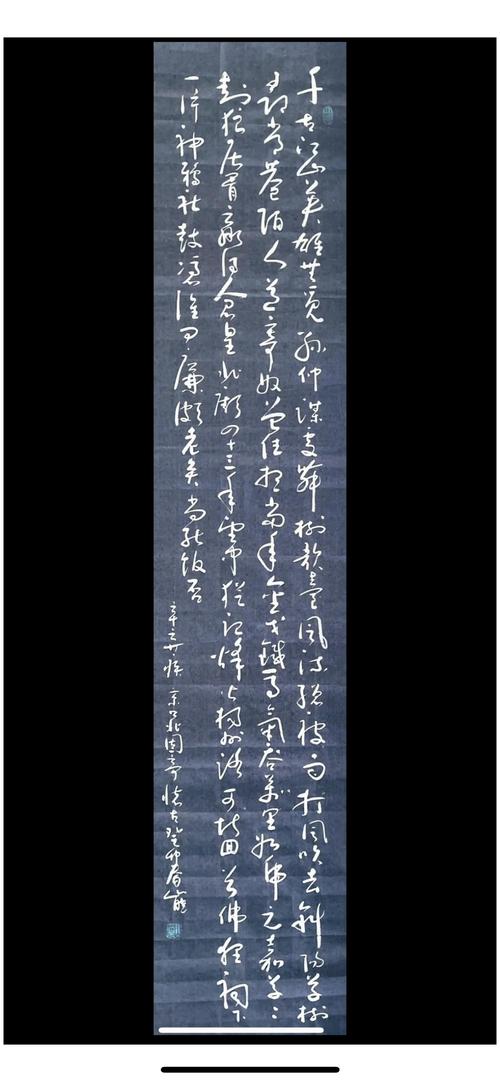 千古江山英雄無覓孫仲謀處舞榭歌臺風流總被雨打風吹去斜陽草樹
尋常巷陌人道寄奴曾住想當年金戈鐵馬氣吞萬里如虎元嘉草草
封狼居胥贏得倉皇北顧四十三年望中猶記烽火揚州路可堪回首佛狸祠下
一片神鴉社鼓憑誰問廉頗老矣尚能飯否
辛棄疾京口北固亭懷古癸卯春